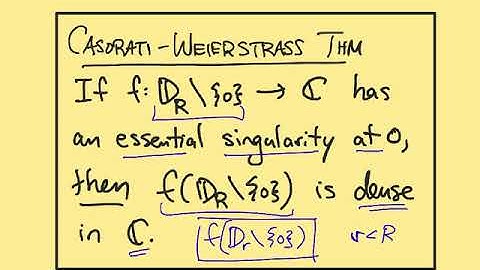 CASORATI-WEIERSTRASS THM
If f: 𝔻_R \ {0} → ℂ has
an essential singularity at 0,
then f(𝔻_R \ {0}) is dense
in ℂ. f(𝔻_r \ {0}) r<R